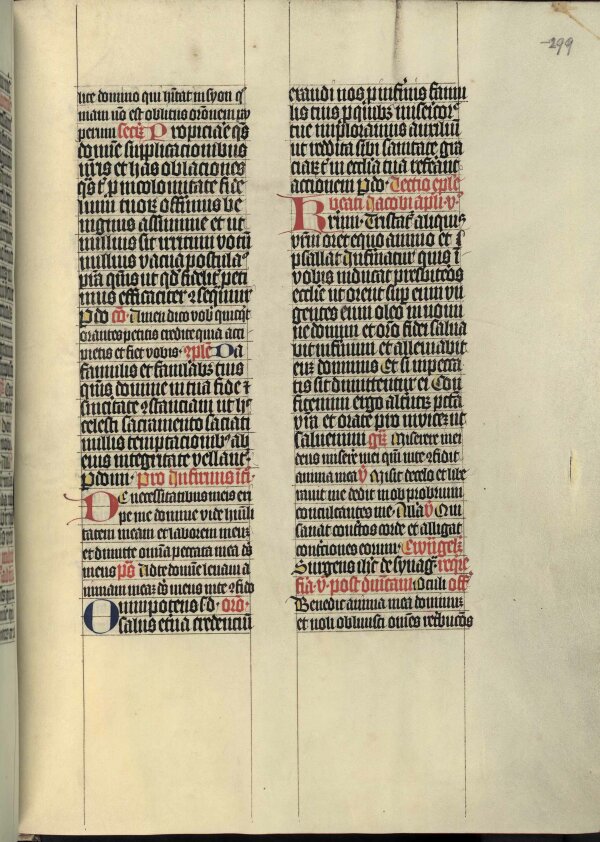 299
lite domino qui hitat in syon qm
niam no est oblitus oronem pau
perum Secr Propiciare qs
domine supplicationibus
nris et has oblationes
qs t p incolumitate fide
lium tuor offerimus be
nignus assumme et ut
nullius sit irritum votum
nullius vacua postula
pta quis ut qd fideliter peti
mus efficaciter osequmur
P do co Amen dico vob quicqt
orantes petitis credite quia acci
pietis et fiet vobis 9ple Da
famulis et famulabus tuis
qms domine in tua fide et
sinceritate ostanciam ut in
celesti sacramento saciati
nullis temptacionibus ab
eius integritate vellant
P domi Pro infirmis in
De necessitatibus meis eri
pe me domine vide humili
tatem meam et laborem meum
et dimitte omnia peccata mea ds
meus ps Ad te domine levavi a
nimam meam ds meus in te ofido
Omnipotens s d oro
salus etna credenciu
exaudi nos p infirmis famu
lis tuis p quibus misericor
tue imploramus auxilium
ut reddita sibi sanitate gra
ciar t in ecclia tua referant
actionem P do Lectio eple
beati Jacobi apli v
Krimi Tristatur aliquis
vrum oret equo animo et
psallat Infirmatur quis i
vobis inducat presbiteros
ecclie ut orent sup eum un
gentes eum oleo in nomi
ne domini et oro fidei salva
bit infirmum et alleviabit
eum dominus Et si in pecca
tis sit dimittentur ei Con
fitemini ergo alterutr pcta
vra et orate pro invicem ut
salvemini gr Miserere mei
deus miserere mei qm in te ofidit
anima mea V Misit de celo et libe
ravit me dedit in obprobrium
conculcantes me Alla V Qui
sanat contritos corde et alligat
contriciones eorum Ewngel
Surgens ihc de synag require
fia v post dnicam Oculi off
Benedic anima mea domino
et noli oblivisci omnes retribucoes